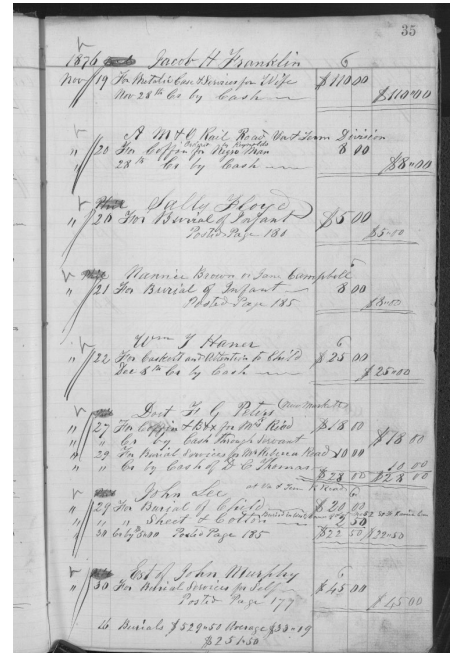 35
1876 Jacob H Franklin 6
Nov 19 For Metalic Case & Services for Wife $110 00
Nov 28th Cr by Cash $110=00
A M & O Rail Road Va & Tenn Division
" 20 For Coffin for Negro Man 8 00
28th Cr by Cash $8=00
Sally Floyd
" 20 For Burial of Infant $5 00
Posted Page 180 $5=00
Nannie Brown or Jane Campbell
" 21 For Burial of Infant 8 00
Posted Page 185 $8=00
Wm J Haner 6
" 22 For Caskett and Attention to Child $25 00
Dec 8th Cr by Cash $25=00
Doct F G Peters (New Market)
" 27 For Coffin & Box for Mrs Read $18 00
" " Cr by Cash Through Servant $18 00
" 29 For Burial Services for Mrs Rebecca Read 10 00
" " Cr by Cash of D C Thomas 10 00
$28 00 $28 00
John Lee 6
" 29 For Burial of Child $20 00
" " Sheet & Cotton 2 50
" 30 Cr by Posted Page 185 $22 50 $22=50
Est of John Murphy 6
" 30 For Burial Services for Self $45 00
Posted Page 177 $45 00
16 Burials $529=50 Average $33=09
$251=50